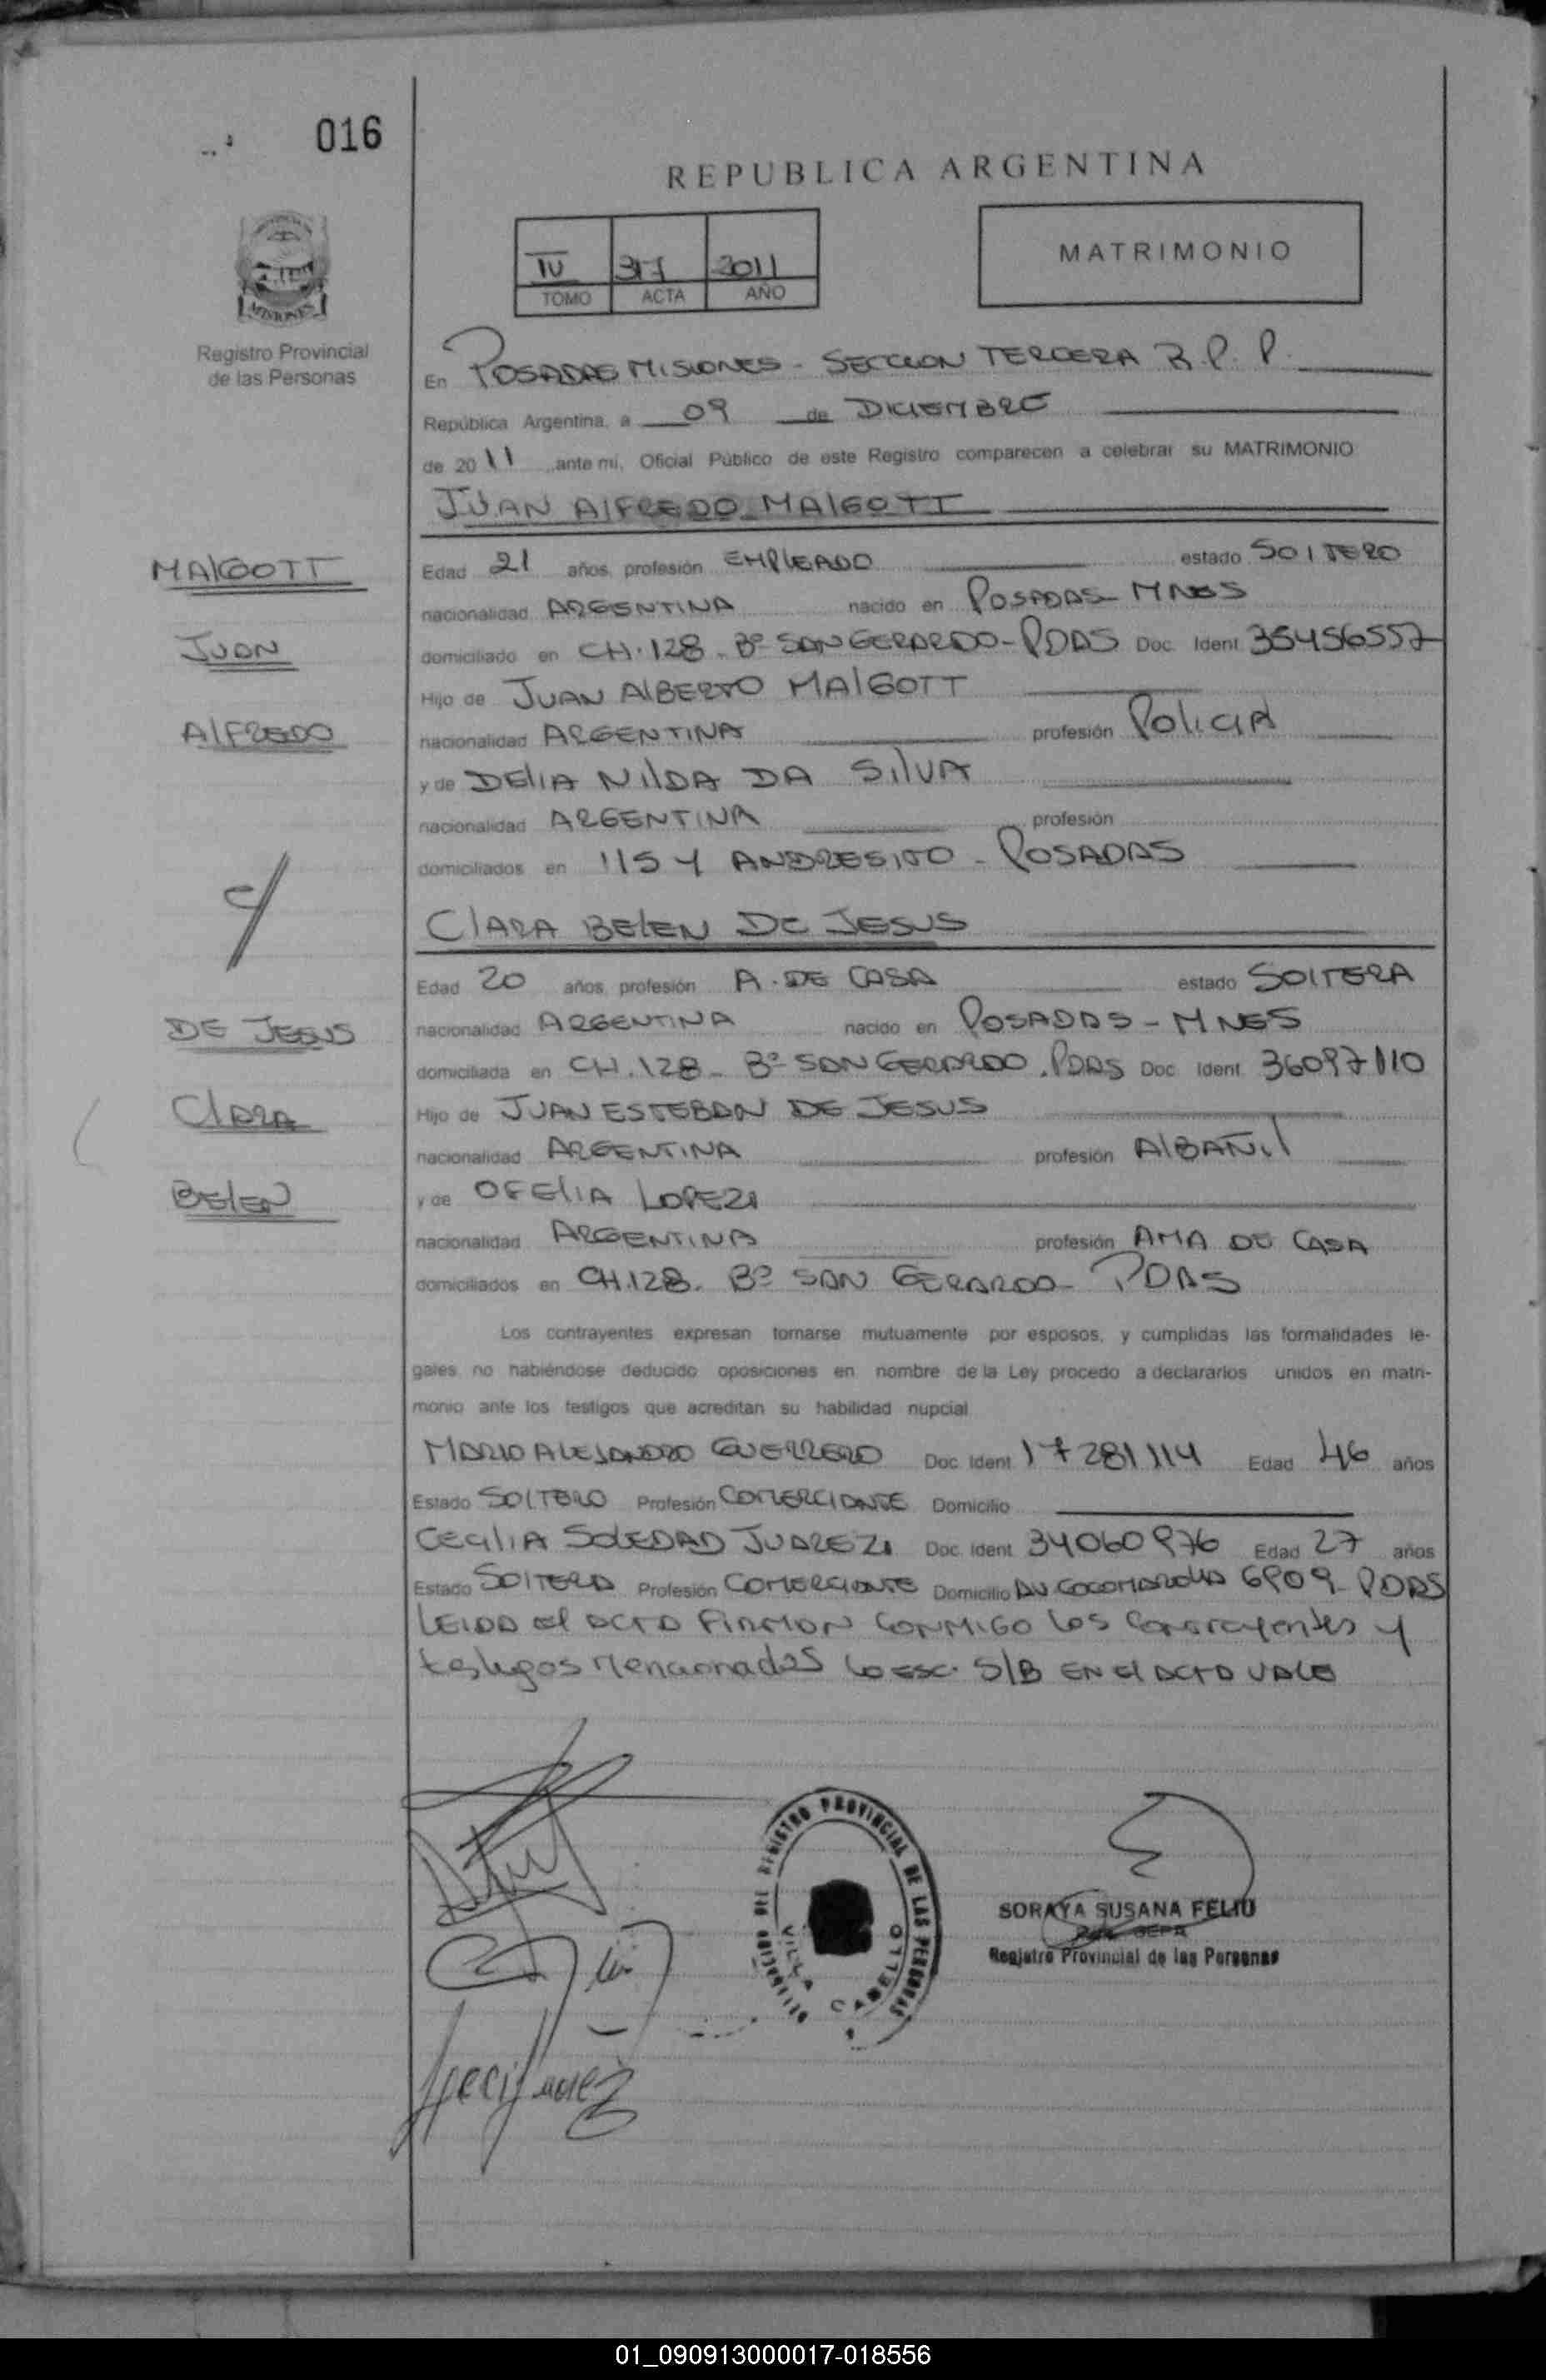 016
REPUBLICA ARGENTINA
IV 317 2011
TOMO ACTA AÑO
MATRIMONIO
MISIONES
Registro Provincial
de las Personas
En POSADAS MISIONES - SECCION TERCERA R.P.P.
República Argentina, a 09 de DICIEMBRE
de 2011 ante mí, Oficial Público de este Registro comparecen a celebrar su MATRIMONIO
JUAN AlFREDO MAlGOTT
MAlGOTT
JUAN
AlFREDO
Edad 21 años, profesión EMPlEADO estado SOlTERO
nacionalidad ARGENTINA nacido en POSADAS - MNES
domiciliado en CH. 128 - Bº SAN GERARDO - PDAS Doc. Ident. 35456557
Hijo de JUAN AlBERTO MAlGOTT
nacionalidad ARGENTINA profesión POlICIA
y de DElIA NIlDA DA SIlVA
nacionalidad ARGENTINA profesión
domiciliados en 115 Y ANDRESITO - POSADAS
Y
ClARA BElEN DE JESUS
DE JESUS
ClARA
BElEN
Edad 20 años, profesión A. DE CASA estado SOlTERA
nacionalidad ARGENTINA nacido en POSADAS - MNES
domiciliada en CH. 128 - Bº SAN GERARDO. PDAS Doc. Ident. 36097110
Hijo de JUAN ESTEBAN DE JESUS
nacionalidad ARGENTINA profesión AlBAÑIl
y de OFElIA LOPEZ
nacionalidad ARGENTINA profesión AMA DE CASA
domiciliados en CH.128. Bº SAN GERARDO - PDAS
Los contrayentes expresan tomarse mutuamente por esposos, y cumplidas las formalidades le-
gales no habiéndose deducido oposiciones en nombre de la Ley procedo a declararlos unidos en matri-
monio ante los testigos que acreditan su habilidad nupcial
MARIO ALEJANDRO GUERRERO Doc. Ident. 17281114 Edad 46 años
Estado SOLTERO Profesión COMERCIANTE Domicilio
CECIlIA SOLEDAD JUAREZ Doc. Ident. 34060976 Edad 27 años
Estado SOlTERA Profesión COMERCIANTE Domicilio AV COCOMAROLA 6909 - PDAS
LEIDA El ACTA FIRMAN CONMIGO los Contrayentes y
testigos Mencionados lo ESC. S/B EN El ACTA VALE
DELEGACION DEL REGISTRO PROVINCIAL DE LAS PERSONAS
VILLA CABELLO
SORAYA SUSANA FELIU
Registro Provincial de las Personas
01_090913000017-018556